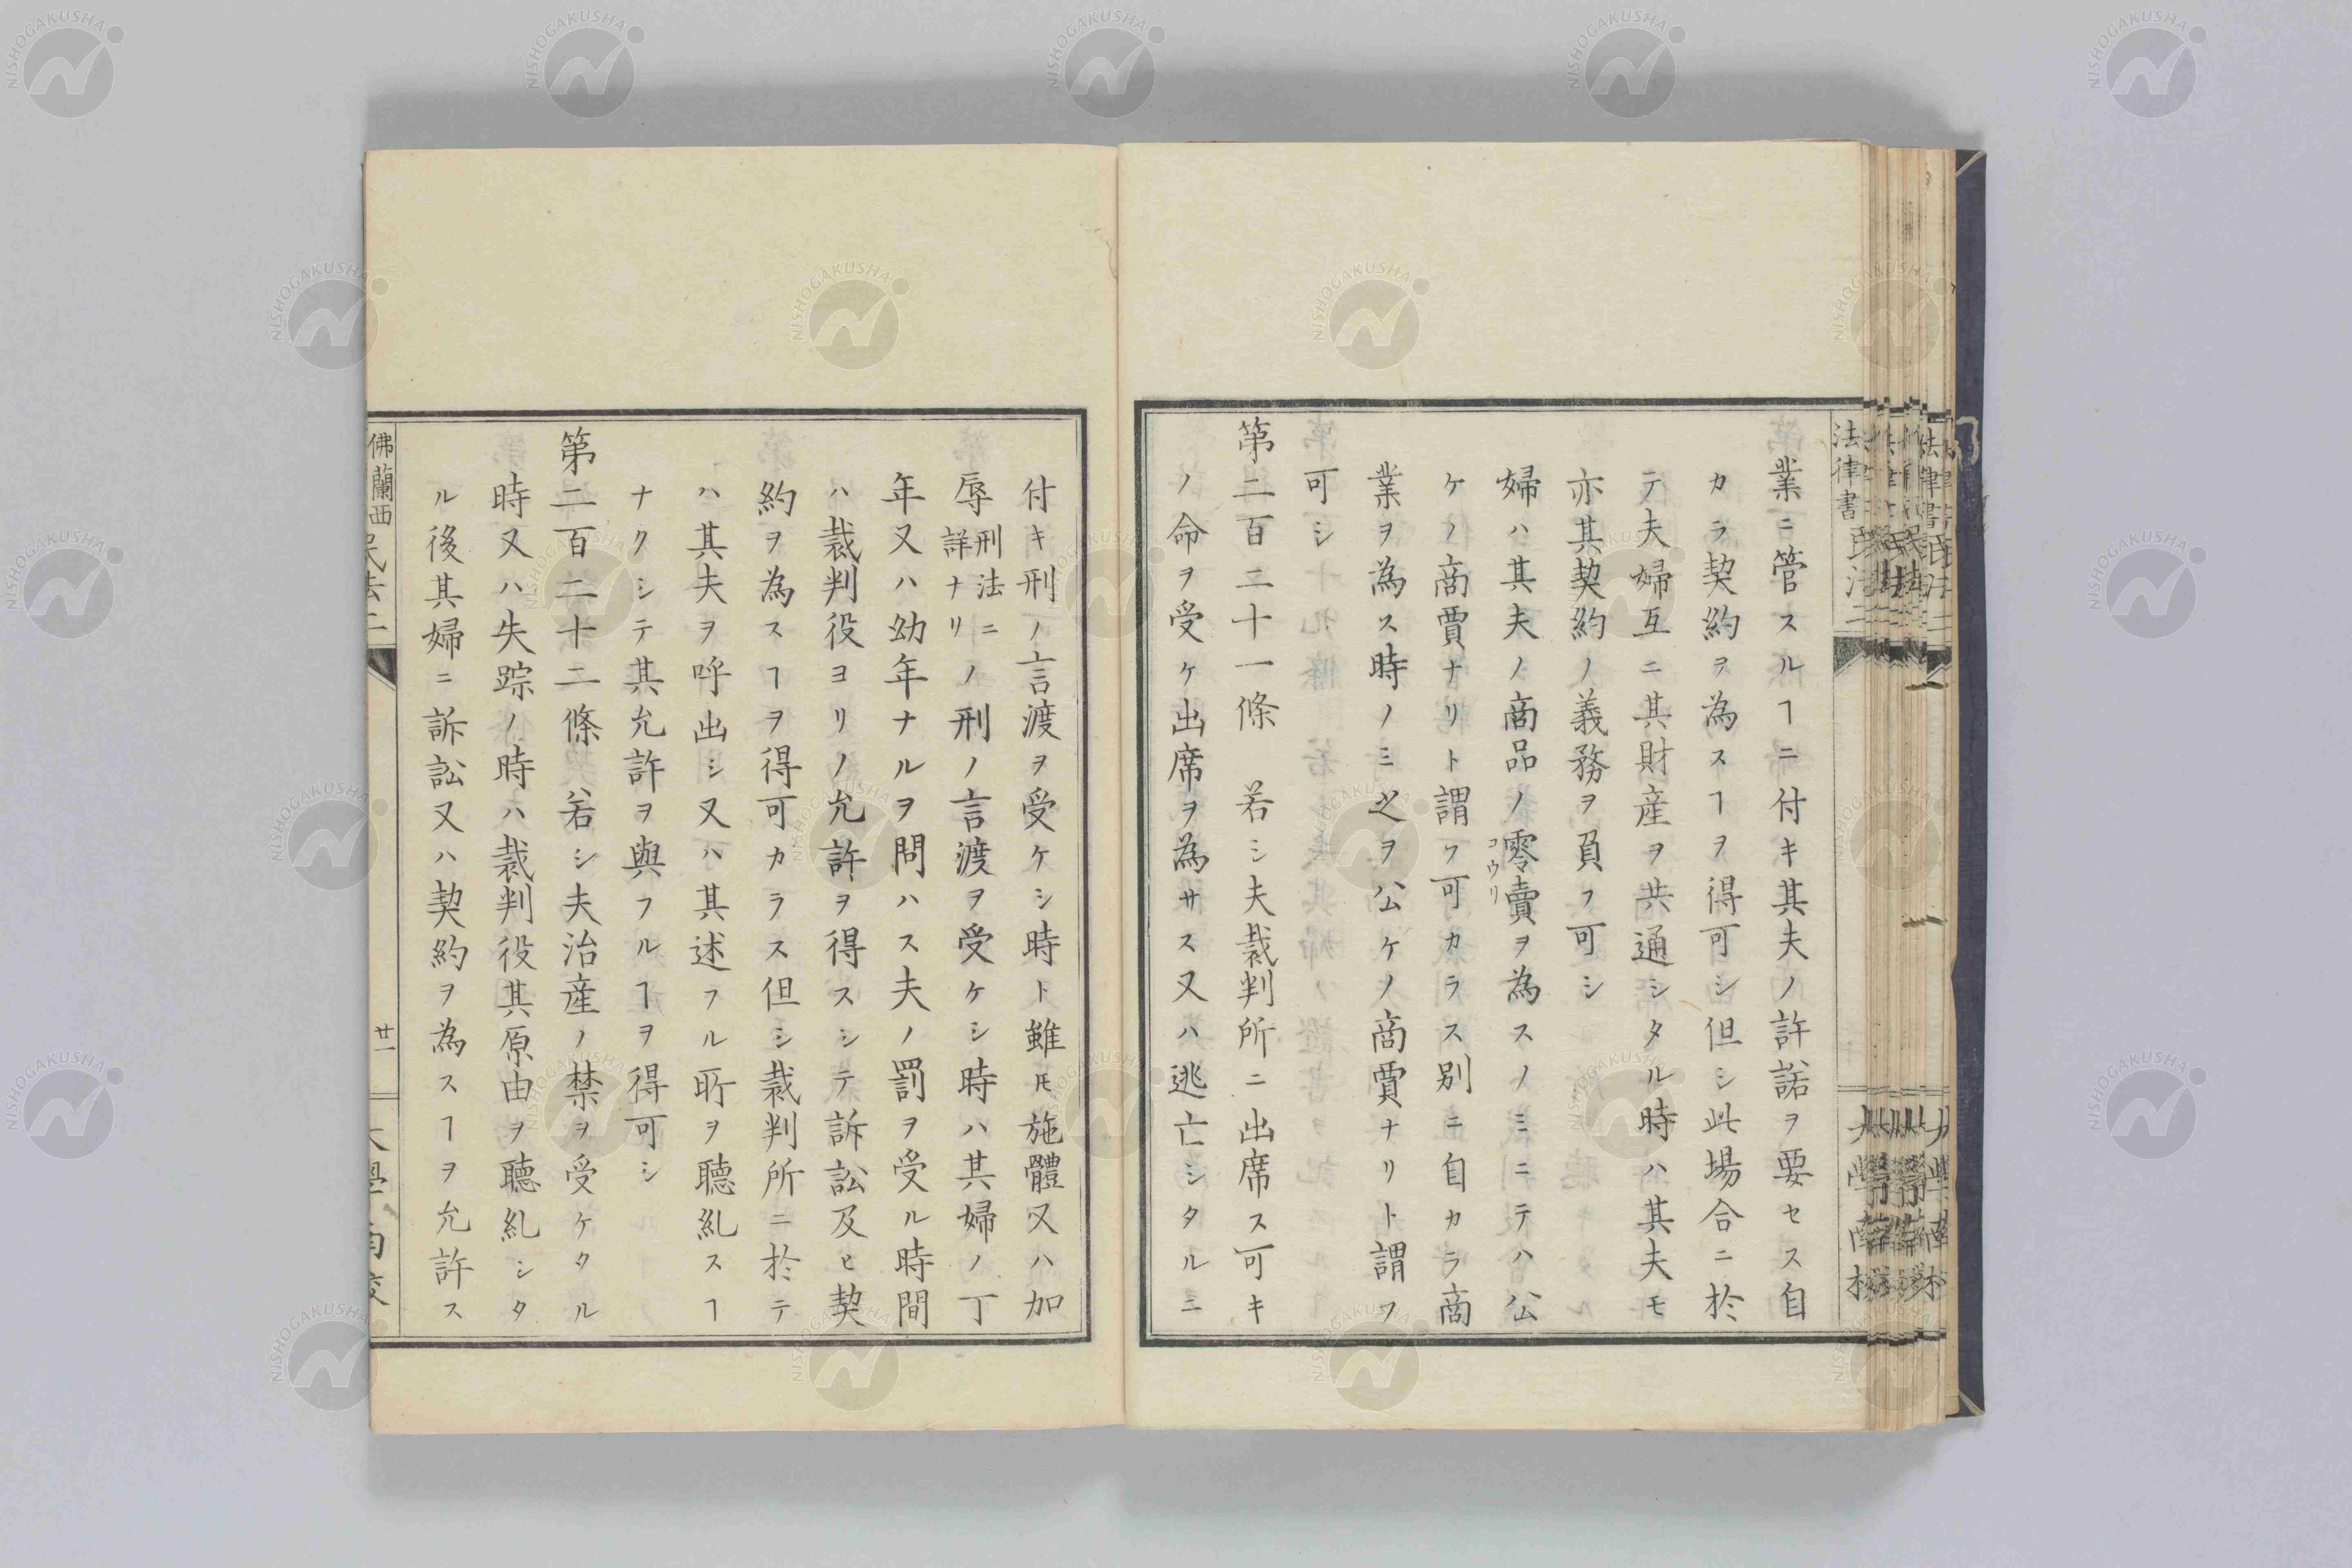 業ニ管スルヿニ付キ其夫ノ許諾ヲ要セス自
カラ契約ヲ為スヿヲ得可シ但シ此場合ニ於
テ夫婦互ニ其財産ヲ共通シタル時ハ其夫モ
亦其契約ノ義務ヲ負フ可シ
婦ハ其夫ノ商品ノ零賣ヲ為スノミニテハ公
コウリ
ケノ商賈ナリト謂フ可カラス別ニ自カラ商
業ヲ為ス時ノミ之ヲ公ケノ商賈ナリト謂フ
可シ
第二百二十一條　若シ夫裁判所ニ出席ス可キ
ノ命ヲ受ケ出席ヲ為サス又ハ逃亡シタルニ
付キ刑ノ言渡ヲ受ケシ時ト雖𪜈施體又ハ加
辱刑法ニ詳ナリノ刑ノ言渡ヲ受ケシ時ハ其婦ノ丁
年又ハ幼年ナルヲ問ハス夫ノ罰ヲ受ル時間
ハ裁判役ヨリノ允許ヲ得スシテ訴訟及ヒ契
約ヲ為スヿヲ得可カラス但シ裁判所ニ於テ
ハ其夫ヲ呼出シ又ハ其述フル所ヲ聴糺スヿ
ナクシテ其允許ヲ與フルヿヲ得可シ
第二百二十二條　若シ夫治産ノ禁ヲ受ケタル
時又ハ失踪ノ時ハ裁判役其原由ヲ聴糺シタ
ル後其婦ニ訴訟又ハ契約ヲ為スヿヲ允許ス
佛蘭西民法二
廿一
大學南校
法律書
民法二
大學南校
NISHOGAKUSHA